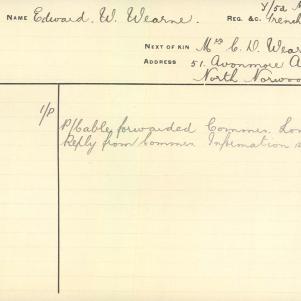 Name Edward. W. Wearne. Reg. &c. Trench
Y/5a
Next of kin Mrs C. D. Wear
Address 51. Avonmore A
North Norwoo
1/P P/Cable forwarded Commer. Lon
Reply from Commer Information